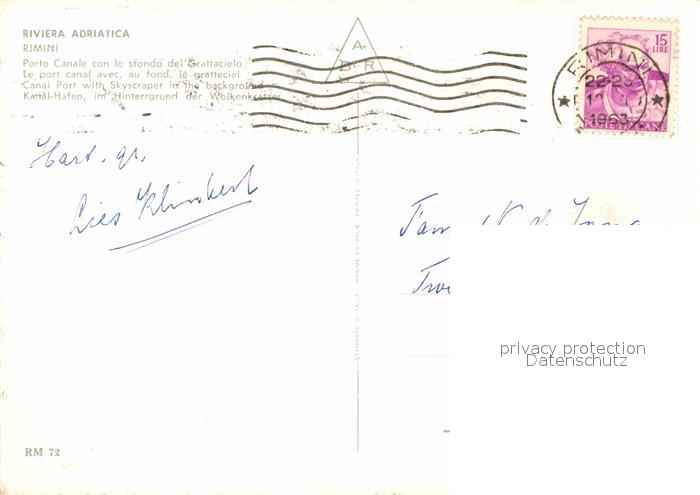 RIVIERA ADRIATICA
RIMINI
Porto Canale con lo sfondo del Grattacielo
Le port canal avec, au fond, le gratteciel
Canal Port with Skyscraper in the background
Kanal-Hafen, im Hinterrgrund der Wolkenkratzer
A
D R
15
LIRE
RIMINI
22-23
1963
Hart. gr.
Lies
Fam
privacy protection
Datenschutz
RM 72